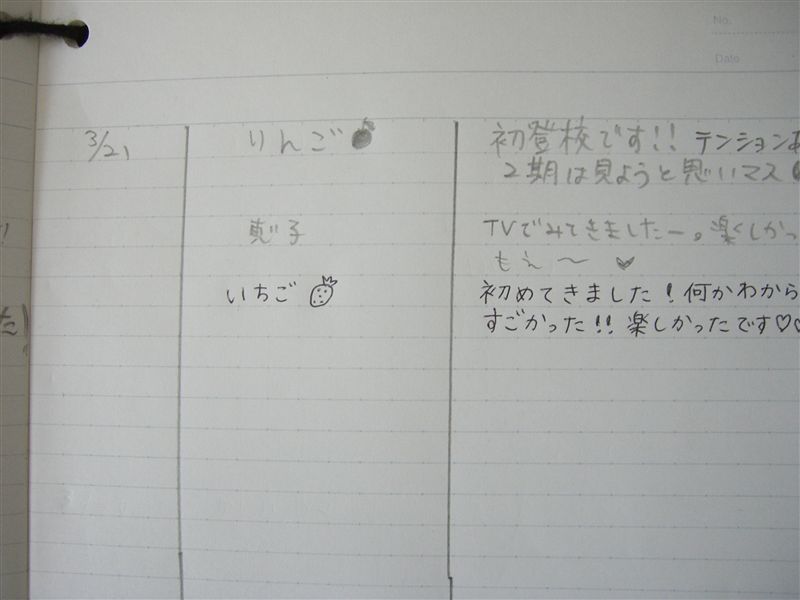 No.
Date
3/21 りんご 初登校です!! テンションあ
2期は見ようと思いマス
恵子 TVでみてきましたー。楽くしかっ
もえ〜
いちご 初めてきました!何かわから
すごかった!!楽しかったです♡♡
た)